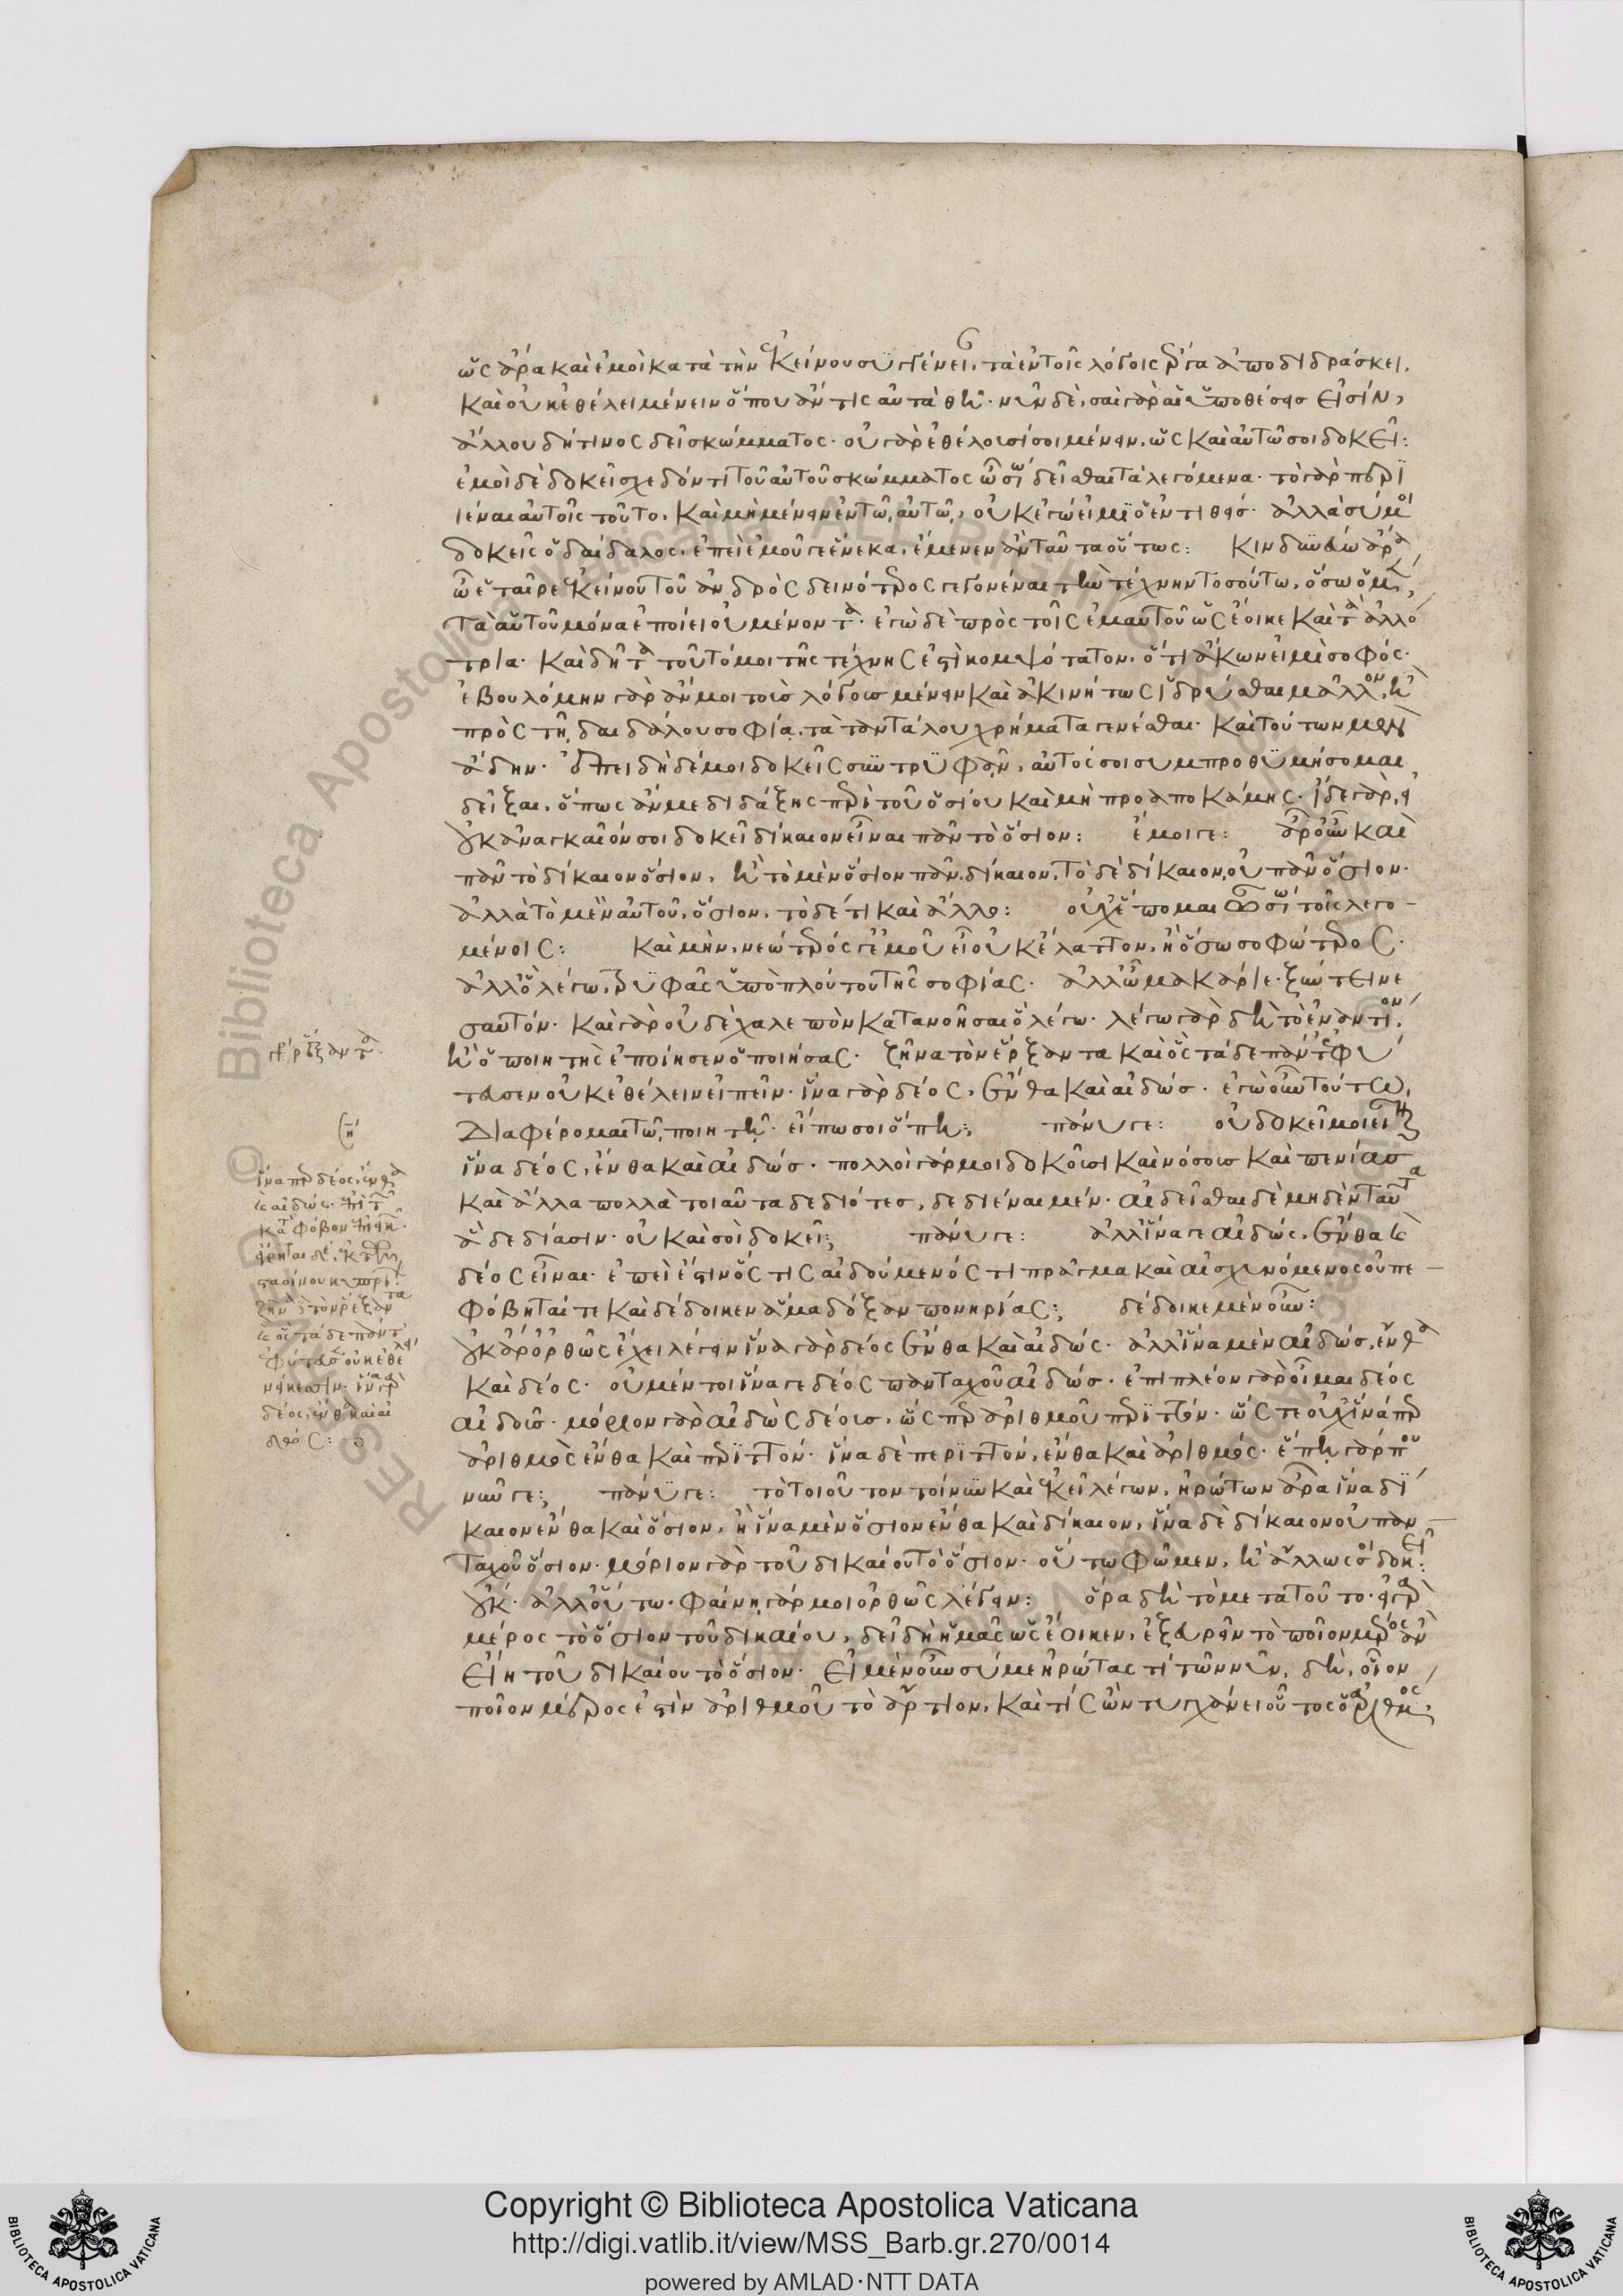 ὡς ἄρα καὶ ἐμοὶ κατὰ τὴν ἐκείνου συγγένειαν, τὰ ἐν τοῖς λόγοις ἔργα ἀποδιδράσκει.
καὶ οὐκ ἐθέλει μένειν ὅπου ἄν τις αὐτὰ θῆ. νῦν δὲ, σαὶ γὰρ αἱ ὑποθέσεις εἰσίν,
ἄλλου δή τινος δεῖ σκώμματος. οὐ γὰρ ἐθέλουσί σοι μένειν, ὡς καὶ αὐτῶ σοι δοκεῖ:
ἐμοὶ δὲ δοκεῖ σχεδόν τι τοῦ αὐτοῦ σκώμματος ὦ σώ δεῖσθαι τὰ λεγόμενα. τὸ γὰρ περι
ιέναι αὐτοῖς τοῦτο, καὶ μὴ μένειν ἐν τῶ αὐτῶ, οὐκ ἐγώ εἰμι ὁ ἐντιθείς. ἀλλὰ σύ μοι
δοκεῖς ὁ δαίδαλος. ἐπεὶ ἐμοῦ γε ἕνεκα, ἔμενεν ἂν ταῦτα οὕτως: κινδυνεύω ἄρα
ὦ ἑταῖρε ἐκείνου τοῦ ἀνδρὸς δεινότερος γεγονέναι τὴν τέχνην τοσούτω, ὅσω ὁ μὲν
τὰ αὑτοῦ μόνα ἐποίει οὐ μένοντα. ἐγὼ δὲ πρὸς τοῖς ἐμαυτοῦ ὡς ἔοικε καὶ τὰ ἀλλό
τρια. καὶ δῆτα τοῦτό μοι τῆς τέχνης ἐστὶ κομψότατον. ὅτι ἄκων εἰμὶ σοφός.
ἐβουλόμην γὰρ ἄν μοι τοὺς λόγους μένειν καὶ ἀκινήτως ἱδρύσθαι μᾶλλον, ἢ
πρὸς τῆ δαιδάλου σοφία, τὰ ταντάλου χρήματα γενέσθαι. καὶ τούτων μὲν
ἄδην. ἐπειδὴ δέ μοι δοκεῖς σὺ τρυφᾶν, αὐτός σοι συμπροθυμήσομαι
δεῖξαι, ὅπως ἄν με διδάξης περὶ τοῦ ὁσίου καὶ μὴ προαποκάμης. ἴδε γὰρ, εἰ
οὐκ ἀναγκαῖόν σοι δοκεῖ δίκαιον εἶναι πᾶν τὸ ὅσιον: ἔμοιγε: ἆρ' οὖν καὶ
πᾶν τὸ δίκαιον ὅσιον, ἢ τὸ μὲν ὅσιον πᾶν δίκαιον, τὸ δὲ δίκαιον, οὐ πᾶν ὅσιον.
ἀλλὰ τὸ μὲν αὐτοῦ, ὅσιον. τὸ δέ τι καὶ ἄλλο: οὐχ ἕπομαι ὦ σώ τοῖς λεγο–
μένοις: καὶ μὴν, νεώτερός γέ μου εἶ οὐκ ἔλαττον, ἢ ὅσω σοφώτερος.
ἀλλ' ὃ λέγω, τρυφᾶς ὑπὸ πλούτου τῆς σοφίας. ἀλλ' ὦ μακάριε, ξύντεινε
σαυτόν. καὶ γὰρ οὐδὲ χαλεπὸν κατανοῆσαι ὃ λέγω. λέγω γὰρ δὴ τὸ ἐναντίον,
ἢ ὁ ποιητὴς ἐποίησεν ὁ ποιήσας. ζῆνα τὸν ἔρξαντα καὶ ὃς τάδε πάντ' ἐφύ
τευσεν οὐκ ἐθέλειν εἰπεῖν. ἵνα γὰρ δέος, ἔνθα καὶ αἰδώς. ἐγὼ οὖν τούτω,
διαφέρομαι τῶ ποιητῆ. εἴπω σοι ὅπη; πάνυ γε: οὐ δοκεῖ μοι εἶναι
ἵνα δέος, ἔνθα καὶ αἰδώς. πολλοὶ γάρ μοι δοκοῦσι καὶ νόσους καὶ πενίας
καὶ ἄλλα πολλὰ τοιαῦτα δεδιότες, δεδιέναι μέν. αἰδεῖσθαι δὲ μηδὲν ταῦτα
ἃ δεδίασιν. οὐ καὶ σοὶ δοκεῖ; πάνυ γε: ἀλλ' ἵνα γε αἰδώς, ἔνθα καὶ
δέος εἶναι. ἐπεὶ ἔστιν ὅς τις αἰδούμενός τι πρᾶγμα καὶ αἰσχυνόμενος οὐ πε–
φόβηταί τε καὶ δέδοικεν ἅμα δόξαν πονηρίας; δέδοικε μὲν οὖν:
οὐκ ἄρ' ὀρθῶς ἔχει λέγειν ἵνα γὰρ δέος ἔνθα καὶ αἰδώς. ἀλλ' ἵνα μὲν αἰδώς, ἔνθα
καὶ δέος. οὐ μέντοι ἵνα γε δέος πανταχοῦ αἰδώς. ἐπὶ πλέον γὰρ οἶμαι δέος
αἰδοῦς. μόριον γὰρ αἰδὼς δέους. ὥσπερ ἀριθμοῦ περιττόν. ὥστε οὐχ ἵνα περ
ἀριθμὸς ἔνθα καὶ περιττόν. ἵνα δὲ περιττόν, ἔνθα καὶ ἀριθμός. ἕπη γάρ που
νῦν γε; πάνυ γε: τὸ τοιοῦτον τοίνυν καὶ ἐκεῖ λέγων, ἠρώτων ἆρα ἵνα δί
καιον ἔνθα καὶ ὅσιον, ἢ ἵνα μὲν ὅσιον ἔνθα καὶ δίκαιον, ἵνα δὲ δίκαιον οὐ παν–
ταχοῦ ὅσιον. μόριον γὰρ τοῦ δικαίου τὸ ὅσιον. οὕτω φῶμεν, ἢ ἄλλως σοι δοκεῖ:
οὐκ. ἀλλ' οὕτω. φαίνη γάρ μοι ὀρθῶς λέγειν: ὅρα δὴ τὸ μετὰ τοῦτο. εἰ γὰρ
μέρος τὸ ὅσιον τοῦ δικαίου, δεῖ δὴ ἡμᾶς ὡς ἔοικεν, ἐξευρεῖν τὸ ποῖον μέρος ἂν
εἴη τοῦ δικαίου τὸ ὅσιον. εἰ μὲν οὖν σύ με ἠρώτας τί τῶν νῦν δὴ, οἷον
ποῖον μέρος ἐστὶν ἀριθμοῦ τὸ ἄρτιον, καὶ τίς ὢν τυγχάνει οὗτος ὁ ἀριθμός.
ἵνα περ δέος, ἔνθα
καὶ αἰδώς.
δέος, ἔνθα καὶ αἰ
δώς:
Copyright © Biblioteca Apostolica Vaticana
http://digi.vatlib.it/view/MSS_Barb.gr.270/0014
powered by AMLAD·NTT DATA
BIBLIOTECA APOSTOLICA VATICANA
BIBLIOTECA APOSTOLICA VATICANA